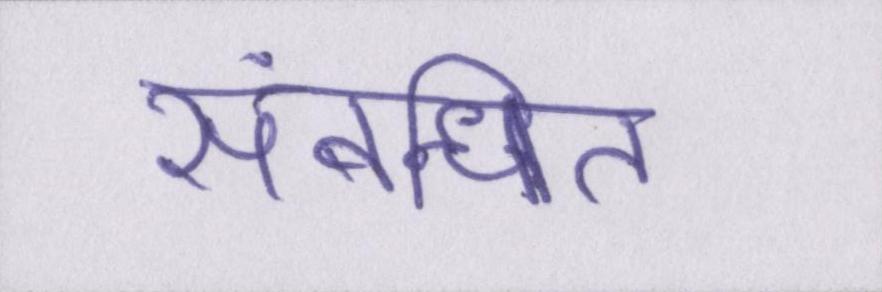 संबन्धित